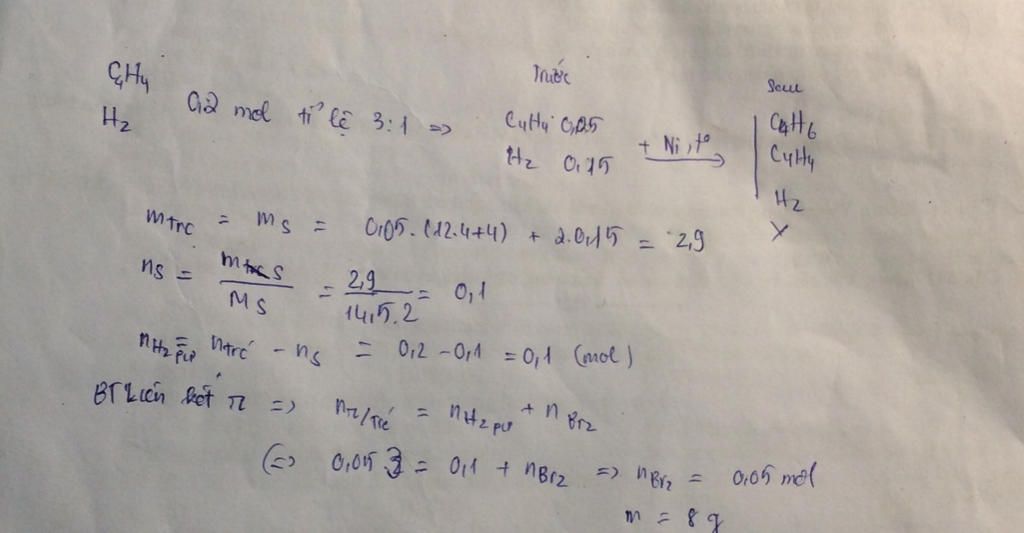 Trước
Sau
C4H4
H2 0,2 mol tỉ lệ 3:1 => C4H4 0,05 + Ni, t° C4H6
H2 0,15 C4H4
H2
Y
mtrc = mS = 0,05.(12.4+4) + 2.0,15 = 2,9
nS = mS / MS = 2,9 / 14,5.2 = 0,1
nH2 pư = ntrc - nS = 0,2 - 0,1 = 0,1 (mol)
BT liên kết π => nπ/trc = nH2 pư + nBr2
(=> 0,05 3 = 0,1 + nBr2 => nBr2 = 0,05 mol
m = 8 g